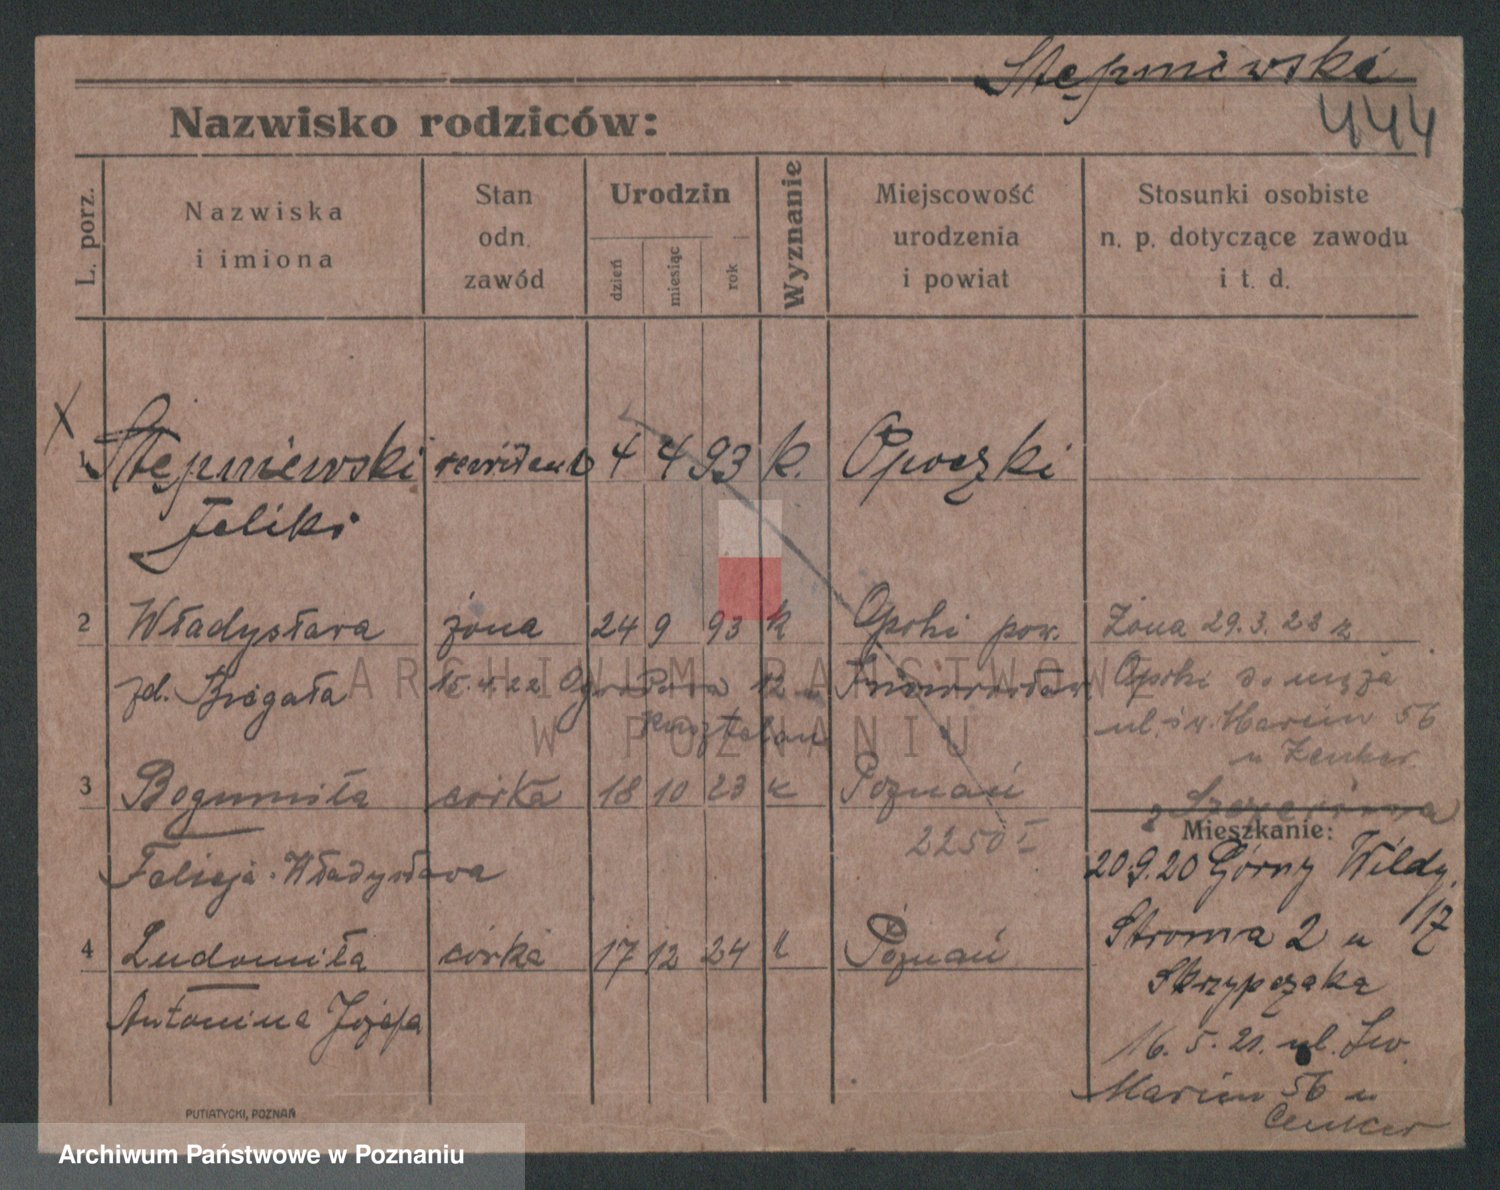 Stępniewski
444
Nazwisko rodziców:
L. porz.
Nazwiska
i imiona
Stan
odn.
zawód
Urodzin
dzień
miesiąc
rok
Wyznanie
Miejscowość
urodzenia
i powiat
Stosunki osobiste
n. p. dotyczące zawodu
i t. d.
X
1 Stępniewski 4 4 93 k. Opoczki
Feliks
2 Władysława żona 24 9 93 k Opoki pow. Żona 29.3.23 z
zd. Bregała 15.4.22 12 Inowrocław Opoki do męża
ul. św. Marcin 56
u Zenker
3 Bogumiła córka 18 10 23 k Poznań
Mieszkanie:
2250 I
20.9.20 Górny Wildy
17
Felicja Władysława
4 Ludomiła córka 17 12 24 k Poznań
Stroma 2 u
Skrzypczaka
Antonina Józefa
16.5.21. ul. Św.
Marcin 56 u
Cenker
PUTIATYCKI, POZNAŃ
ARCHIWUM PAŃSTWOWE
W POZNANIU
Archiwum Państwowe w Poznaniu